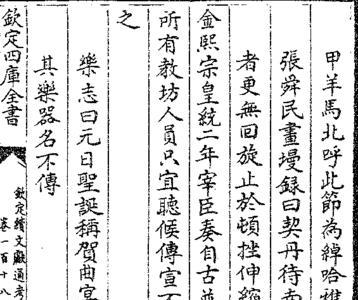 甲羊馬北呼此節為綽哈
張舜民畫墁錄曰契丹待南
者更無回旋止於頓挫伸縮
金熙宗皇統二年宰臣奏自古並
所有教坊人員只宜聽候傳宣不
之
樂志曰元日聖誕稱賀曲宴
其樂器名不傳
欽定四庫全書
欽定續文獻通考
卷一百十八